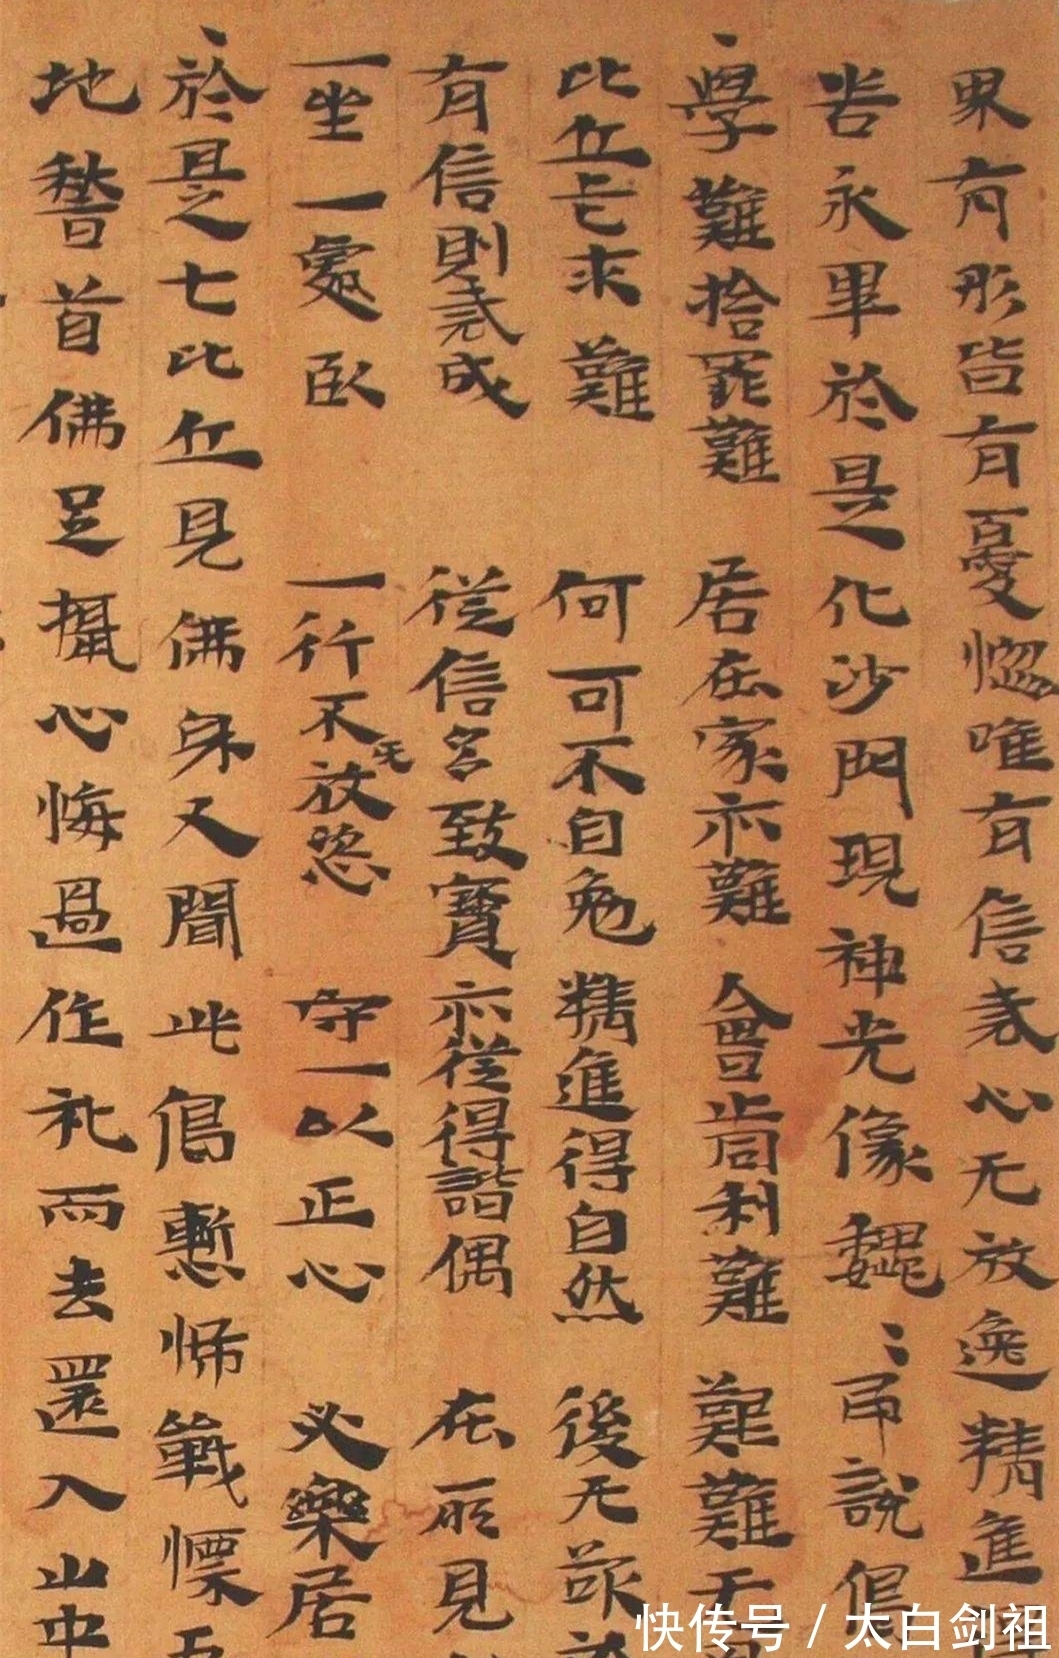 界有形皆有憂惱唯有信戒心无放逸精進
苦永畢於是化沙門現神光像巍〻即說偈
學難捨罪難 居在家亦難 會同利難 艱難无
比丘乞求難 何可不自勉 精進得自然 後无欲
有信則戒成 從信名致寶 亦從得諧偶 在所見
一坐一處臥 一行不无放恣 守一以正心 必樂居
於是七比丘見佛身又聞此偈慙怖戰慄五
地稽首佛足攝心悔過作礼而去還入山中
快传号 / 太白剑祖